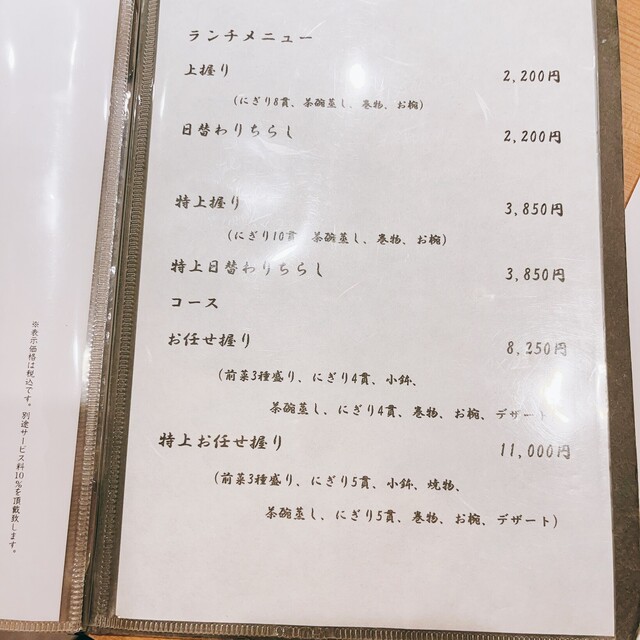 ランチメニュー
上握り 2,200円
(にぎり8貫、茶碗蒸し、巻物、お椀)
日替わりちらし 2,200円
特上握り 3,850円
(にぎり10貫、茶碗蒸し、巻物、お椀)
特上日替わりちらし 3,850円
コース
お任せ握り 8,250円
(前菜3種盛り、にぎり4貫、小鉢、
茶碗蒸し、にぎり4貫、巻物、お椀、デザート
特上お任せ握り 11,000円
(前菜3種盛り、にぎり5貫、小鉢、焼物、
茶碗蒸し、にぎり5貫、巻物、お椀、デザート)
※表示価格は税込です。別途サービス料10%を頂戴致します。